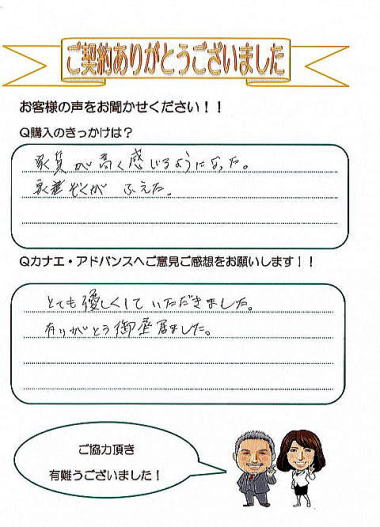 ご契約ありがとうございました
お客様の声をお聞かせください！！
Q購入のきっかけは？
家賃が高く感じるようになった。
家族がふえた。
Qカナエ・アドバンスへご意見ご感想をお願いします！！
とても優しくしていただきました。
有りがとう御座居ました。
ご協力頂き
有難うございました！